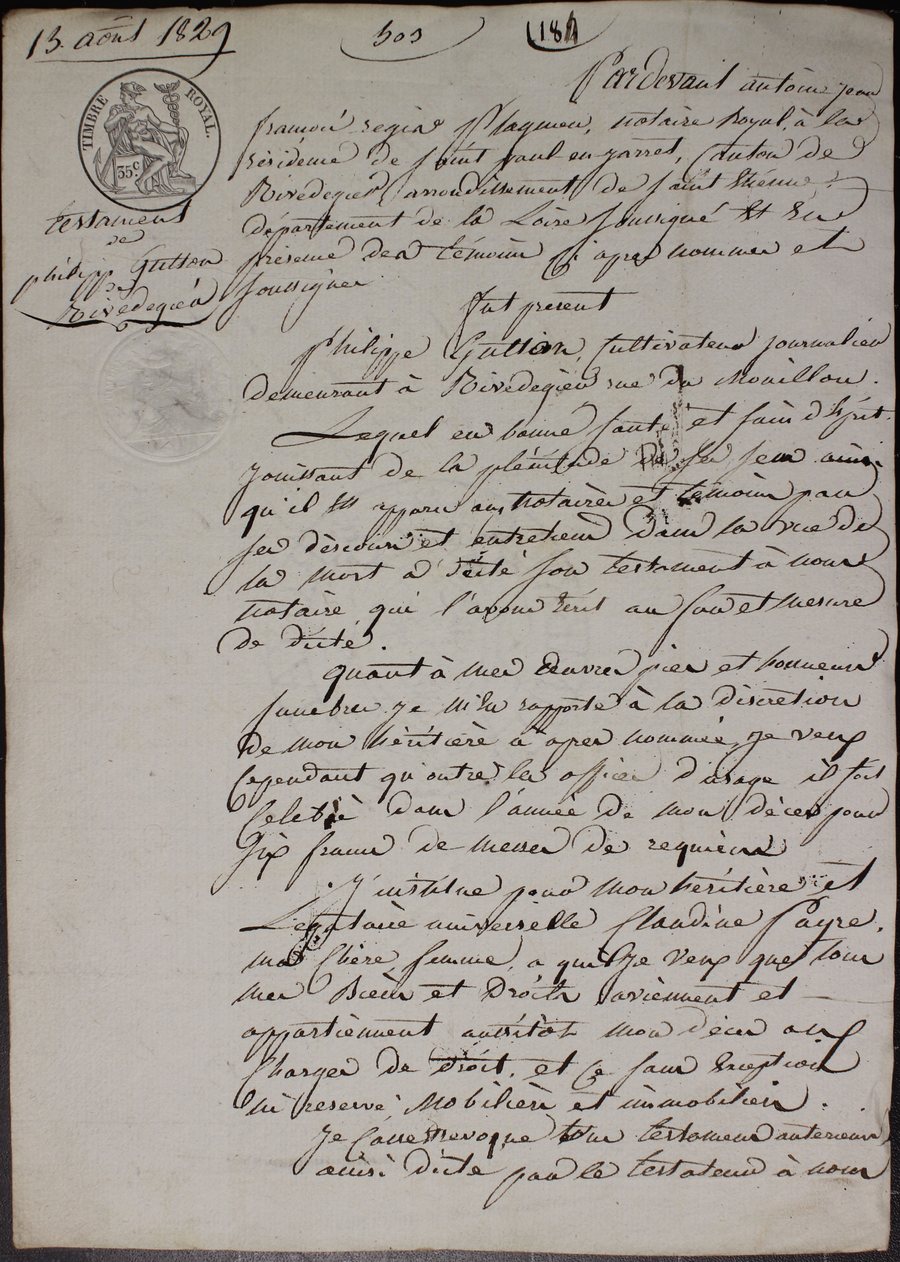 13. août 1829
503
184
TIMBRE ROYAL.
35 c
testament
de
philippe Gutton
de
Rivedegier
Pardevant antoine jean
françois regis notaire Royal, à la
résidence de saint paul en jarret, Canton de
Rivedegier, arrondissement de saint Etienne,
département de la Loire soussigné Et En
présence des témoins Ci après nommés et
soussignés
fut present
philippe Gutton, Cultivateur journalier
demeurant à Rivedegier, rue du Mouillon.
Lequel en bonne santé et sain d'Esprit.
jouissant de la plénitude de ses sens ainsi
qu'il Est apparu aux notaire et témoins par
ses discours et entretiens Dans la vue de
la mort a dicté son testament à nous
notaire qui l'avons Ecrit au fur et mesure
de dicté.
quant à mes œuvres pies et honneurs
funebres je m'En rapporte à la discretion
de mon héritière ci après nommée, je veux
Cependant qu'outre les offices d'usage il soit
Celebré dans l'année de mon décès pour
Six francs de messes de requiem
J'institue pour mon héritière et
Legataire universelle Claudine Payre,
ma Chère femme, a qui je veux que tous
mes Biens et Droits aviennent et
appartiennent aussitôt mon décès aux
Charges de droit, et ce sans Exception
ni reserve, Mobiliers et immobiliers.
Je Casse et revoque tous testaments anterieurs
ainsi dicté par le testateur à nous